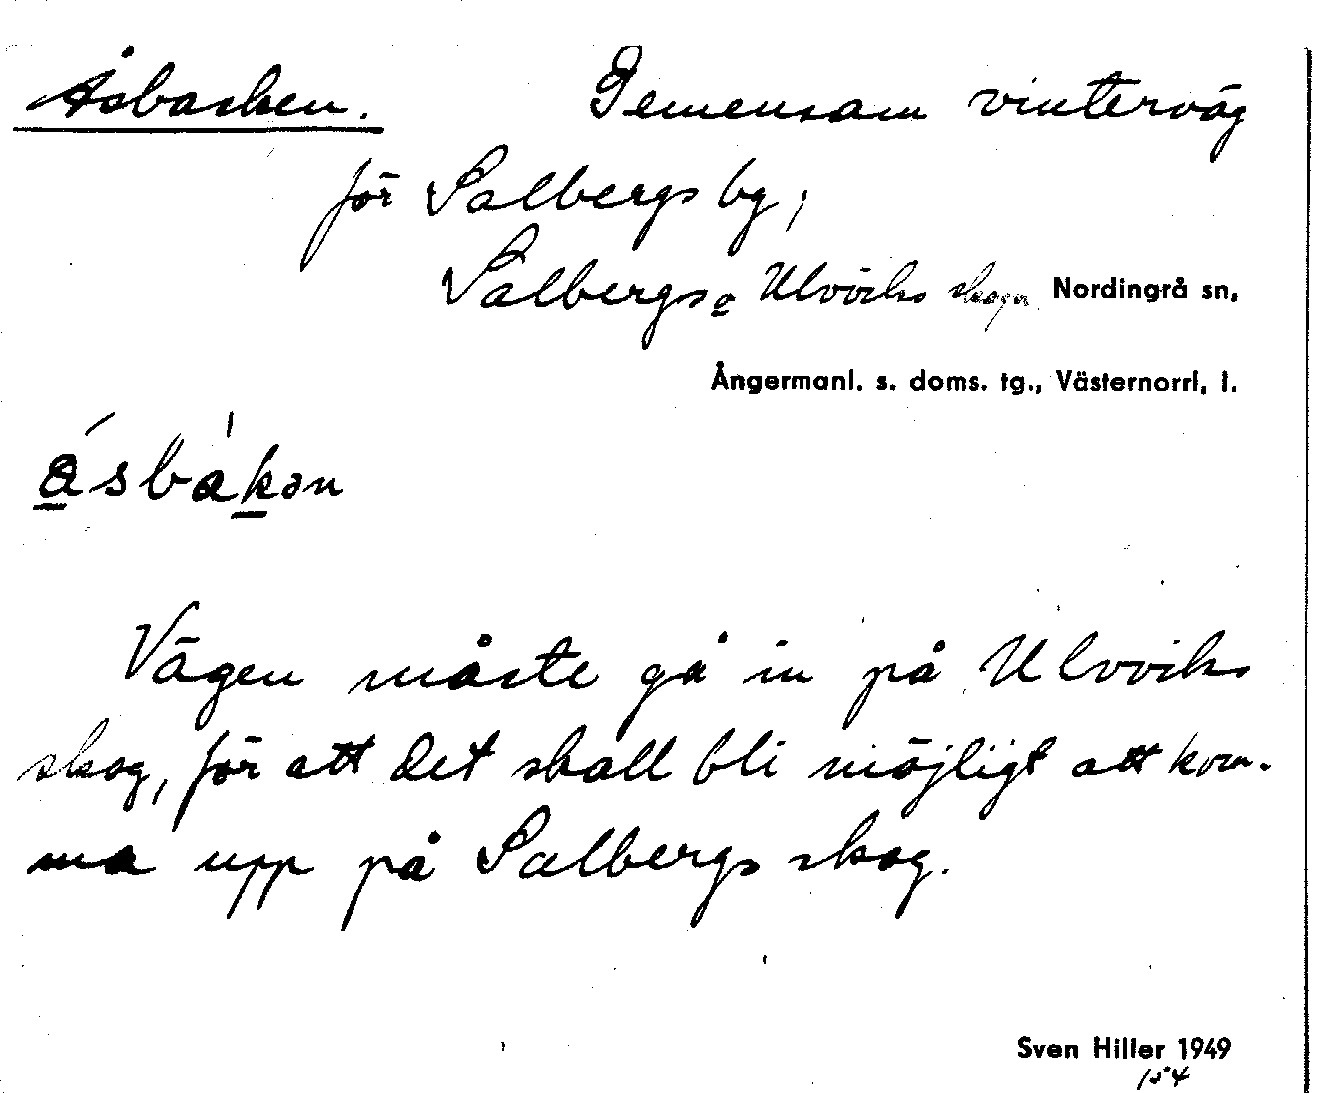 Åsbacken. Gemensam vinterväg
för Salbergs by,
Salbergs o Ulvviks skogar Nordingrå sn,
Ångermanl. s. doms. tg., Västernorrl. l.
åsbakən
Vägen måste gå in på Ulvviks
skog, för att det skall bli möjligt att kom-
ma upp på Salbergs skog.
Sven Hiller 1949
154